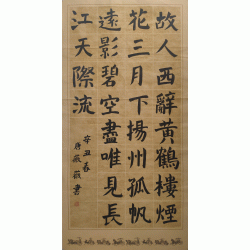 故人西辭黃鶴樓煙
花三月下揚州孤帆
遠影碧空盡唯見長
江天際流
辛丑春
書